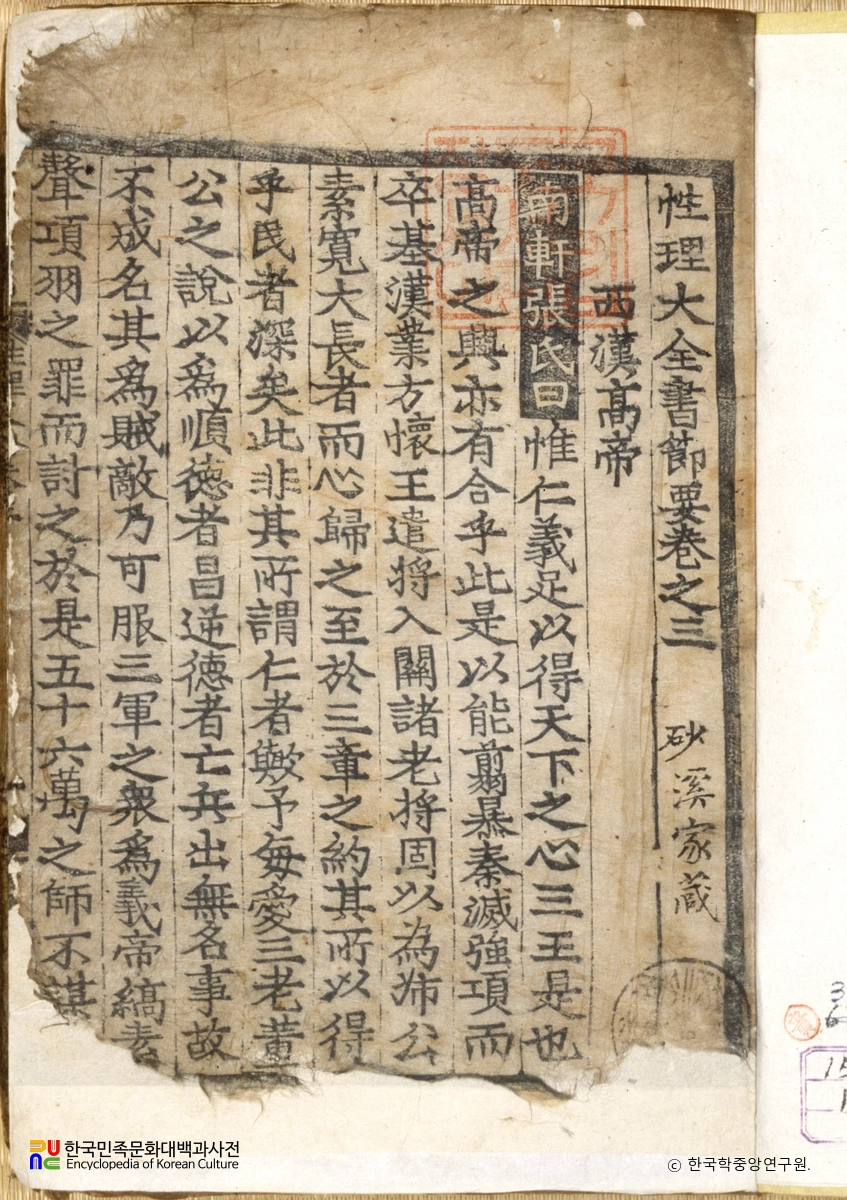 性理大全書節要卷之三
砂溪家藏
西漢高帝
南軒張氏曰惟仁義足以得天下之心三王是也
高帝之興亦有合乎此是以能翦暴秦滅強項而
卒基漢業方懷王遣將入關諸老將固以為沛公
素寬大長者而心歸之至於三章之約其所以得
乎民者深矣此非其所謂仁者歟予每愛三老董
公之說以爲順德者昌逆德者亡兵出無名事故
不成名其爲賊敵乃可服三軍之衆爲義帝縞素
聲項羽之罪而討之於是五十六萬之師不謀
한국민족문화대백과사전
Encyclopedia of Korean Culture
© 한국학중앙연구원.